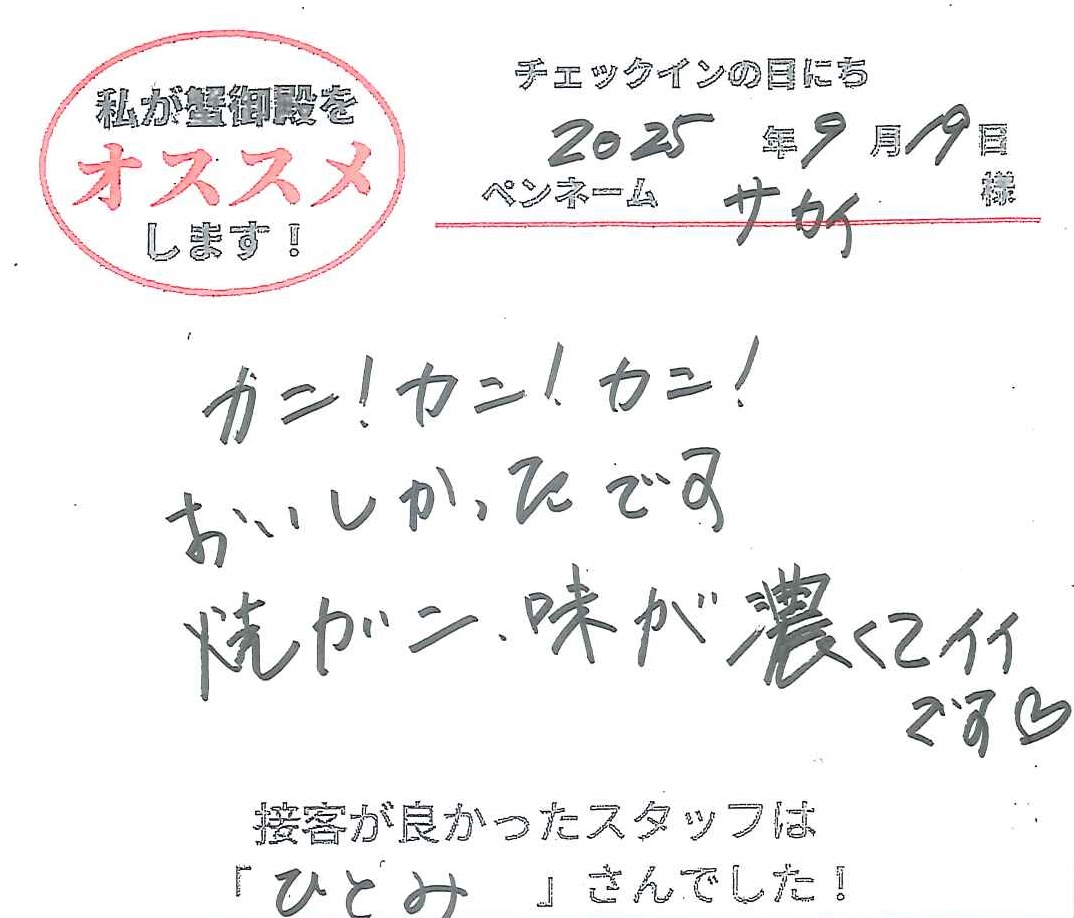 私が蟹御殿を
オススメ
します！
チェックインの日にち
2025年9月19日
ペンネーム サカイ 様
カニ！カニ！カニ！
おいしかったです
焼ガニ、味が濃くてイイ
です♡
接客が良かったスタッフは
「ひとみ」さんでした！